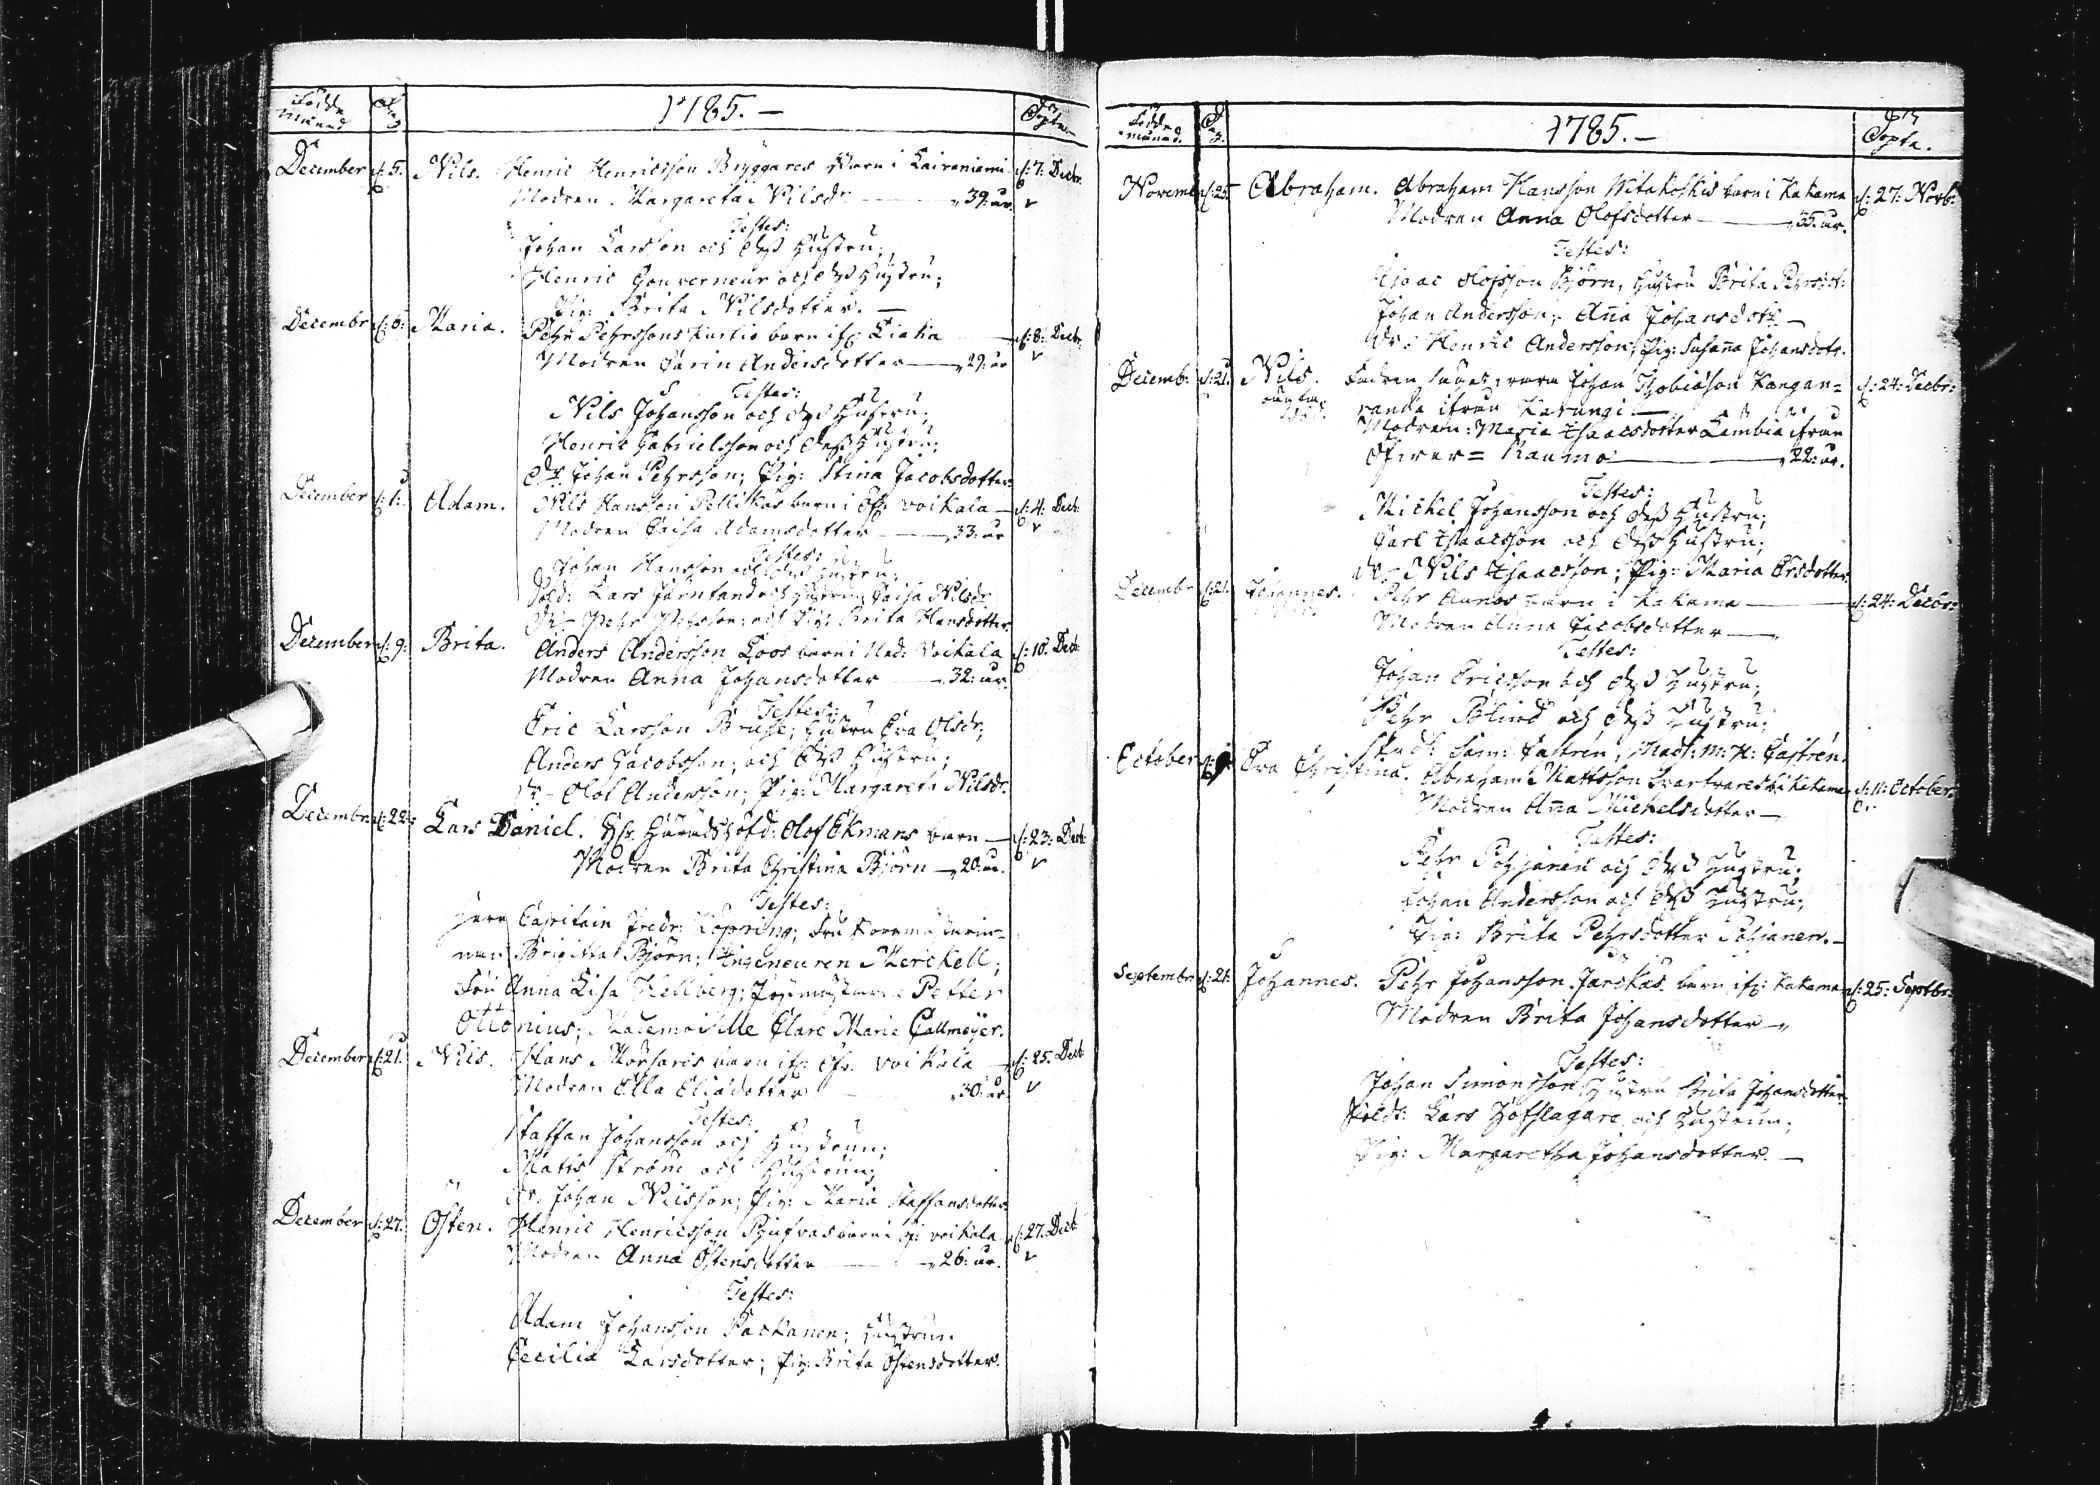 Födde Månad Dag 1785.– Döpte.
December d: 5. Nils. Henric Henricsson Bryggares Barn i Kairaniemi d: 7: Decbr.
Modren Margareta Nilsdr 39: år.
Testes:
Johan Larsson och dess Hustru;
Henric Gouverneur och dess Hustru;
Pig: Brita Nilsdotter. –
Decembr d: 6: Maria. Pehr Pehrssons Kurtio barn if: Liaka d: 8: Decbr.
Modren Carin Andersdotter 29: år
Testes:
Nils Johansson och dess Hustru;
Henric Gabrielsson och dess Hustru;
Dr. Johan Pehrsson; Pig: Stina Jacobsdotter.
December d: 1: Adam. Nils Hansson Pellikas barn i Öfr. Voikala d: 4: Decbr:
Modren Caisa Adamsdotter 33: år
Testes:
Johan Hansson och dess Hustru;
Sold: Lars Järntand och Hustrun Caisa Nilsdr
Dr. Pehr Pehrsson; och Pig: Brita Hansdotter.
December d: 9: Brita. Anders Andersson Loos barn i Ned: Voikala d: 10: Decbr.
Modren Anna Johansdotter 32: år.
Testes:
Eric Larsson Bruse; Hustru Eva Olsdr;
Anders Jacobsson; och dess Hustru;
Dr. Olof Andersson; Pig: Margareta Nilsdr.
Decembr: d: 22: Lars Daniel. Hr. Häradshöfd: Olof Ekmans barn – d: 23: Decbr:
Modren Brita Christina Björn – 20: år.
Testes:
Herr Capitain Fredr: Kopring; Fru
Brigitta Björn; Ingeneuren Merckell;
Fru Anna Lisa Hellberg; Petter
Ottonius; Mademoiselle Clare Marie Callmeyer.
December d: 21: Nils. Hans Morsaris barn if: Öfr. Voikala – d: 25. Decbr:
Modren Ella Eliædotter 30: år
Testes:
Staffan Johansson och Hustrun;
Matts Ström och Hustrun;
Dr. Johan Nilsson; Pig: Maria Staffansdotter.
December d: 27: Östen. Henric Henricsson barn i Öf: Voikala d: 27. Decbr
Modren Anna Östensdotter 26: år.
Testes:
Adam Johansson Packanen; Hustrun
Cecilia Larsdotter; Pig: Brita Östensdotter.
Födde månad. Dag. 1785.– Döpte.
Novemb d: 25 Abraham. Abraham Hansson Witakoskis barn i Kakama d: 27: Novb:
Modren Anna Olofsdotter 35: år.
Testes:
Isaac Olofsson Björn, Hustru Brita Pehrsdot:
Johan Andersson; Anna Johansdotr –
Dr: Henric Andersson; Pig: Susanna Johansdotr.
Decemb: d: 21. Nils. Fadren vara Johan Thobiæson Kangan=
oäkta randa ifrån Karungi –
Modren: Maria Isaacsdotter Lambia ifrån
Öfver= Raumo 22: år. d: 24: Decbr:
Testes:
Michel Johansson och dess Hustru;
Carl Isaacsson och dess Hustru;
Dr. Nils Isaacsson; Pig: Maria Ersdotter.
December d: 21. Johannes. Pehr Aunos barn i Kakama d: 24: Decbr:
Modren Anna Jacobsdotter –
Testes:
Johan Ericsson och dess Hustru;
Pehr Blind och dess Hustru;
Stud: Sam: Castrén, Mads: M: H: Castrén.
October Eva Christina. Abraham Mattsson i Kakama d: 11: October.
Modren Anna Michelsdotter –
Testes:
Pehr Pohjanen och dess Hustru;
Johan Andersson och dess Hustru;
Pig: Brita Pehrsdotter Pohjanen. –
Septembr: d: 21: Johannes. Pehr Johansson Janskas barn if: Kakama d: 25: Septbr:
Modren Brita Johansdotter –
Testes:
Johan Simonsson Hustru Brita Johansdotter.
Soldt: Lars Hofslagare, och Hustrun;
Pig: Margaretha Johansdotter. –